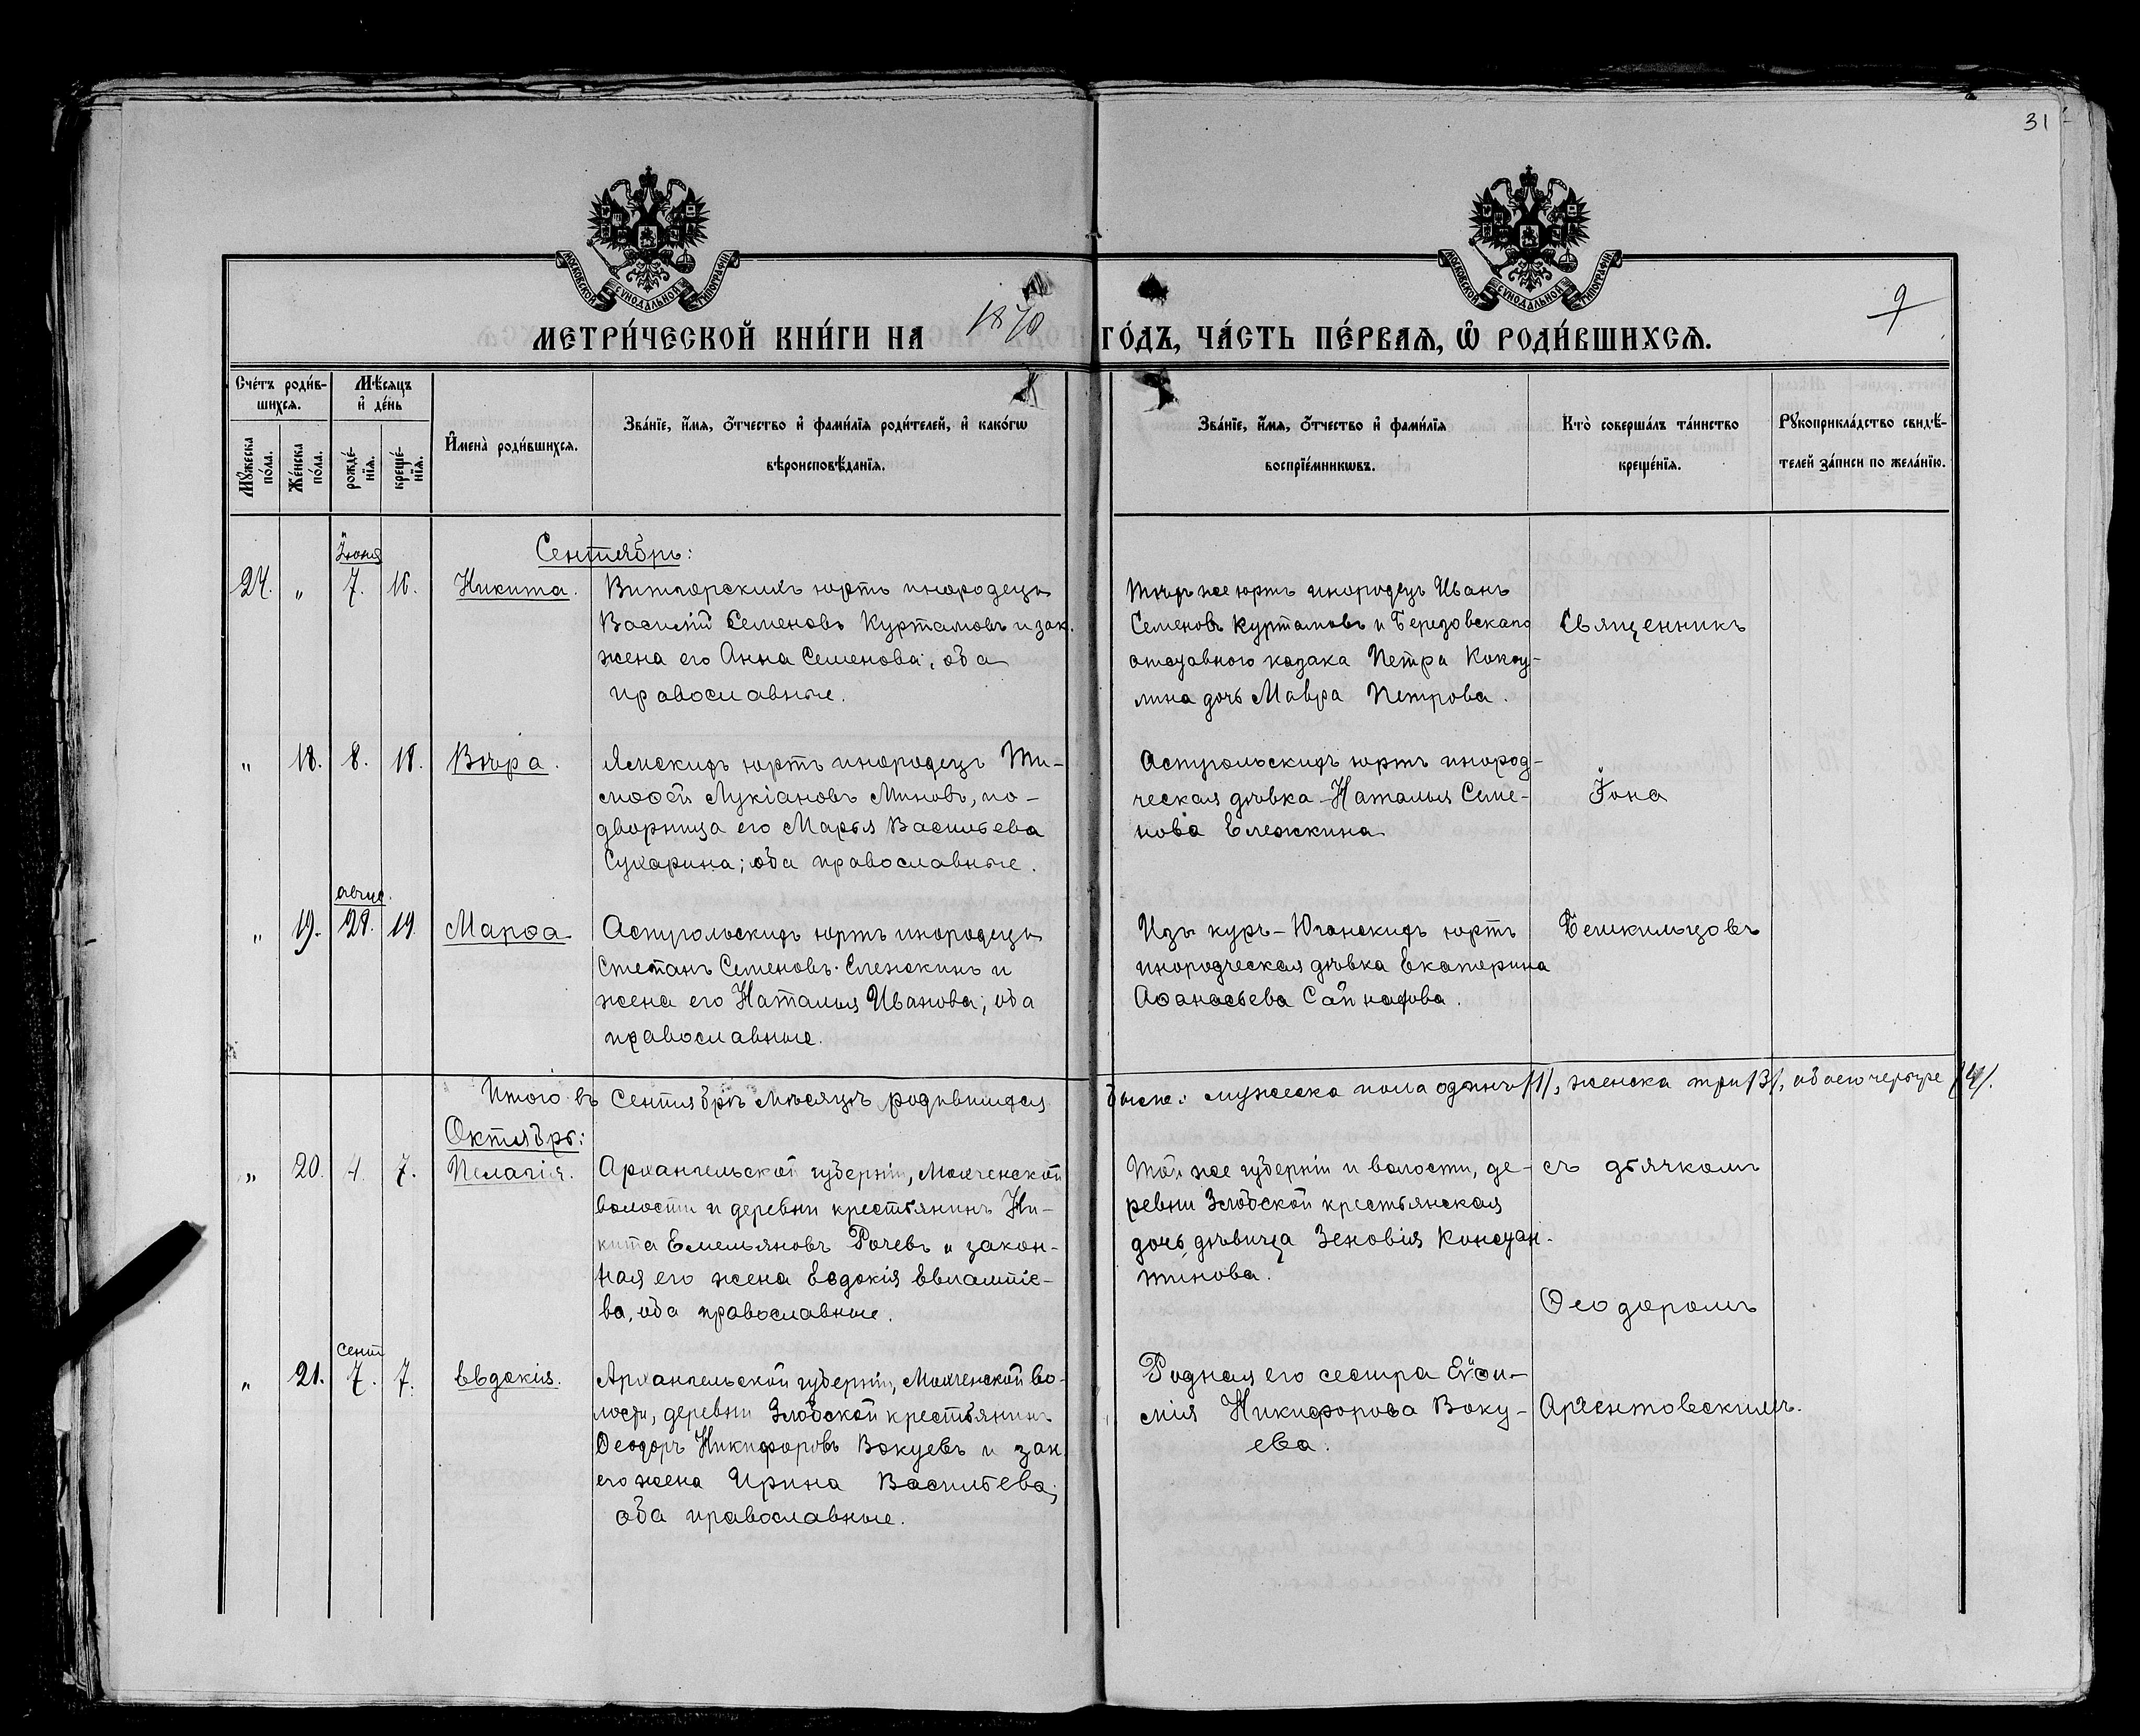 31
МОСКОВСКОЙ СѴНОДАЛЬНОЙ ТИПОГРАФІИ
МОСКОВСКОЙ СѴНОДАЛЬНОЙ ТИПОГРАФІИ
9
МЕТРИ́ЧЕСКОЙ КНИ́ГИ НА 1870 ГО́ДЪ, ЧА́СТЬ ПЕ́РВАЯ, Ѡ РОДИ́ВШИХСЯ.
Сче́тъ роди́в-
шихся.
Мѣ́сяцъ
и де́нь
Мꙋ́жеска
по́ла.
Же́нска
по́ла.
рожде́-
нїя.
креще́-
нїя.
Имена̀ роди́вшихся.
Зва́нїе, и́мя, о́тчество и фами́лїя роди́телей, и како́гѡ
вѣроисповѣ́данїя.
Зва́нїе, и́мя, о́тчество и фами́лїя
воспрїе́мникѡвъ.
Кто̀ соверша́лъ та́инство
креще́нїя.
Рꙋкоприкла́дство свидѣ́-
телей за́писи по жела́нїю.
Сентябрь:
Іюня
24. " 7. 16. Никита. инородецъ
Василій Семеновъ Куртамовъ и зак.
жена его Анна Семенова; оба
православные.
Тѣхъ же юртъ инородецъ Иванъ
Семеновъ Куртамовъ и Березовскаго
отставного казака Петра
дочь Мавра Петрова.
Священникъ
" 18. 8. 18. Вѣра. юртъ инородецъ Ти-
моѳей Лукіановъ Миновъ, по-
дворница его Марья Васильева
Сухарина; оба православные.
юртъ инород-
ческая дѣвка Наталья Семе-
нова Ележкина
Іона
авгус.
" 19. 29. 19. Марѳа юртъ инородецъ
Степанъ Семеновъ Ележкинъ и
жена его Наталья Иванова; оба
православные.
Изъ юртъ
инородческая дѣвка Екатерина
Аѳанасьева
Бешкильцовъ
Итого въ Сентябрѣ мѣсяцѣ родившихся было: мужеска пола одинъ /1/, женска три /3/, обоего четыре /4/.
Октябрь:
" 20. 4. 7. Пелагія. Архангельской губерніи, Мохченской
волости и деревни крестьянинъ Ни-
кита Емельяновъ Рочевъ и закон-
ная его жена Евдокія Евлампіе-
ва, оба православные.
Той же губерніи и волости, де-
ревни крестьянская
дочь, дѣвица Зеновія Констан-
тинова.
съ дьячкомъ
Ѳеодоромъ
сент
" 21. 7. 7. Евдокія. Архангельской губерніи, Мохченской во-
лости, деревни крестьянинъ
Ѳеодоръ Никифоровъ Вокуевъ и зак.
его жена Ирина Васильева;
оба православные.
Родная его сестра Евѳи-
мія Никифорова Воку-
ева.
Аргентовскимъ.